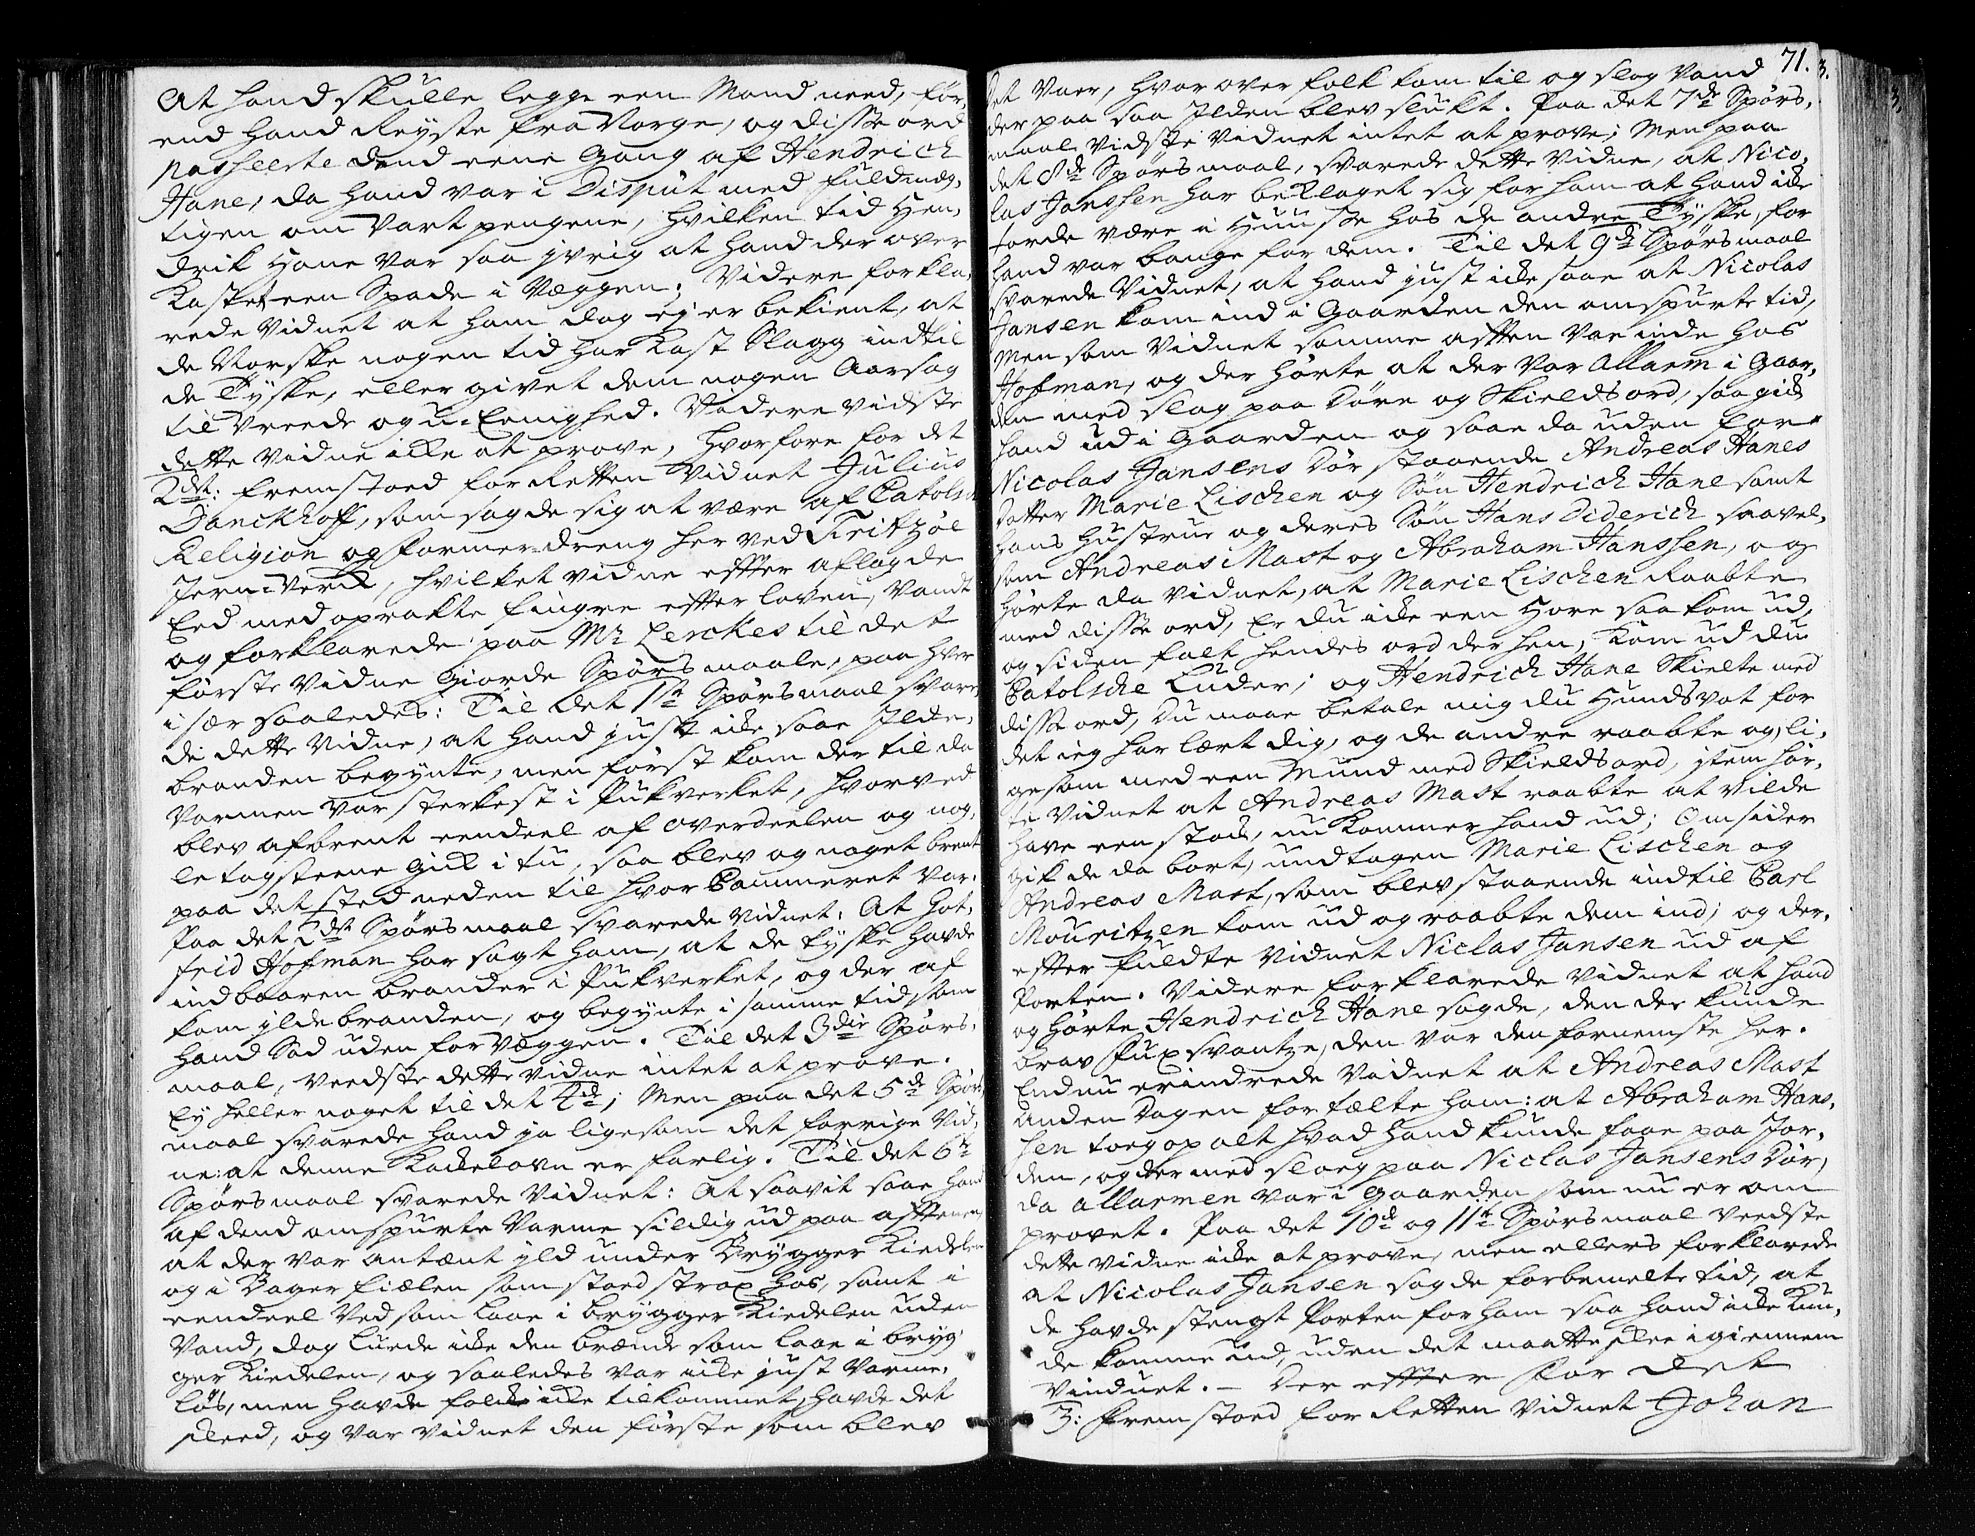 At hand skulle legge een Mand need, før,
end hand Reyste fra Norge, og disse ord
passeerte dend eene Gang af Hendrich
Hane, da hand var i Disput med fuldmæg,
tigen om Vart pengene, hvilken tid Hen,
drik Hane var saa ivrig at hand der over
Kastet een Spade i Væggen; Videre forkla,
rede Vidnet at ham dog ej er bekient, at
de Norske nogen tid har Kast Slagg ind til
de Tyske, eller givet dem nogen Aarsag
til Vreede og u-Eenighed. Videre vidste
dette Vidne icke at prove, hvorfore for det
2det: fremstoed for Retten Vidnet Julius
Danckhoff, som sagde sig at være af Catolsk
Religion og former-dreng her ved Fritzøe
Jern-Verk, hvilket vidne effter aflagde
Eed med oprakte fingre effter loven, Vandt
og forklarede paa Mr Lerckes til det
første Vidne Giorde Spørsmaale, paa hver
i sær saaledes: Til det 1te Spørsmaal svare,
de dette Vidne, at hand just icke saae Ilde,
branden begynte, men først kom der til da
Varmen var sterkest i Pukverket, hvorved
blev afbrent eendeel af overdeelen og nog,
le tagsteene Gik i tu, saa blev og noget brent
paa det sted neden til hvor Cammeret var.
Paa det 2det Spørsmaal svarede Vidnet: At Got,
frid Hofman har sagt ham, at de tyske havde
indbaaren brander i Pukverket, og der af
kom ildebranden, og begynte i samme tid som
hand Sad uden for Væggen. Til det 3die Spørs,
maal, veedste dette Vidne intet at prove.
Ey heller noget til det 4de; Men paa det 5te Spørs,
maal svarede hand ja ligesom det forrige Vid,
ne: at denne Kackelovn er farlig. Til det 6te
Spørsmaal svarede Vidnet: At saavit saae hand
af dend omspurte Varme sildig ud paa afftenen,
at der var antænt ild under Brygger Kiedelen
og i Bager fiælen som stoed strax hos, samt i
eendeel Ved som laae i brygger Kiedelen uden
Vand, dog luede icke den brænde som laae i bryg,
ger Kiedelen, og saaledes var icke just Varme,
løs, men havde folk icke tilkommet, havde det
skeed, og var vidnet den første som blev
71.
det Vaer, hvor over folk kom til og slog Vand
der paa saa Ilden blev slukt. Paa det 7de Spørs,
maal vidste Vidnet intet at prove; Men paa
det 8de Spørsmaal, svarede dette Vidne, at Nico,
las Janssen har beklaget sig for ham at hand icke
torde være i Huuse hos de andre Tyske, for
hand var bange for dem. Til det 9de Spørsmaal
svarede Vidnet, at hand just icke saae at Nicolas
Jansen kom ind i Gaarden den omspurte tid,
Men som Vidnet samme afften var inde hos
Hofman, og der hørte at der var Allarm i Gaar,
den med slag paa Døre og Skieldsord, saa gick
hand ud i Gaarden og saae da uden for
Nicolas Jansens Dør staaende Andreas Hanes
Datter Marie Lischen og Søn Hendrich Hane samt
hans Hustrue og deres Søn Hans Diderich saavel,
som Andreas Mast og Abraham Hanssen, og
hørte da vidnet, at Marie Lischen Raabte
med disse ord, Er du icke een Hore saa kom ud,
og siden falt hendes ord der hen, Kom ud du
Catolsche Luder; og Hendrich Hane Skielte med
disse ord, Du maae betale mig du Hundsvot for
det ieg har lært dig, og de andre raabte og, li,
gesom med een Mund med Skieldsord, item hør,
te Vidnet at Andreas Mast raabte at vilde
have een stock, nu kommer hand ud; Omsider
gik de da bort, undtagen Marie Lischen og
Andreas Mast, som blev staaende indtil Carl
Mouritzen kom ud og raabte dem ind; og der,
effter fuldte Vidnet Niclas Jansen ud af
Porten. Videre forklarede Vidnet at hand
og hørte Hendrich Hane sagde, den der kunde
brav fuxsvantze, den var den fornemste her.
Endnu erindrede Vidnet at Andreas Mast
anden Dagen fortælte ham: at Abraham Hans,
sen toeg op alt hvad hand kunde faae paa Jor,
den, og der med sloeg paa Niclas Jansens Dør,
da allarmen var i Gaarden som nu er om
provet. Paa det 10de og 11te Spørsmaal veedste
dette vidne icke at prove, men ellers forklarede
at Nicolas Jansen sagde forbemelte tid, at
de havde stengt Porten for ham saa hand icke kun,
de komme ud, uden det maatte skee igiennem
Vinduet. – Der effter for det
3: fremstoed for Retten Vidnet Johan